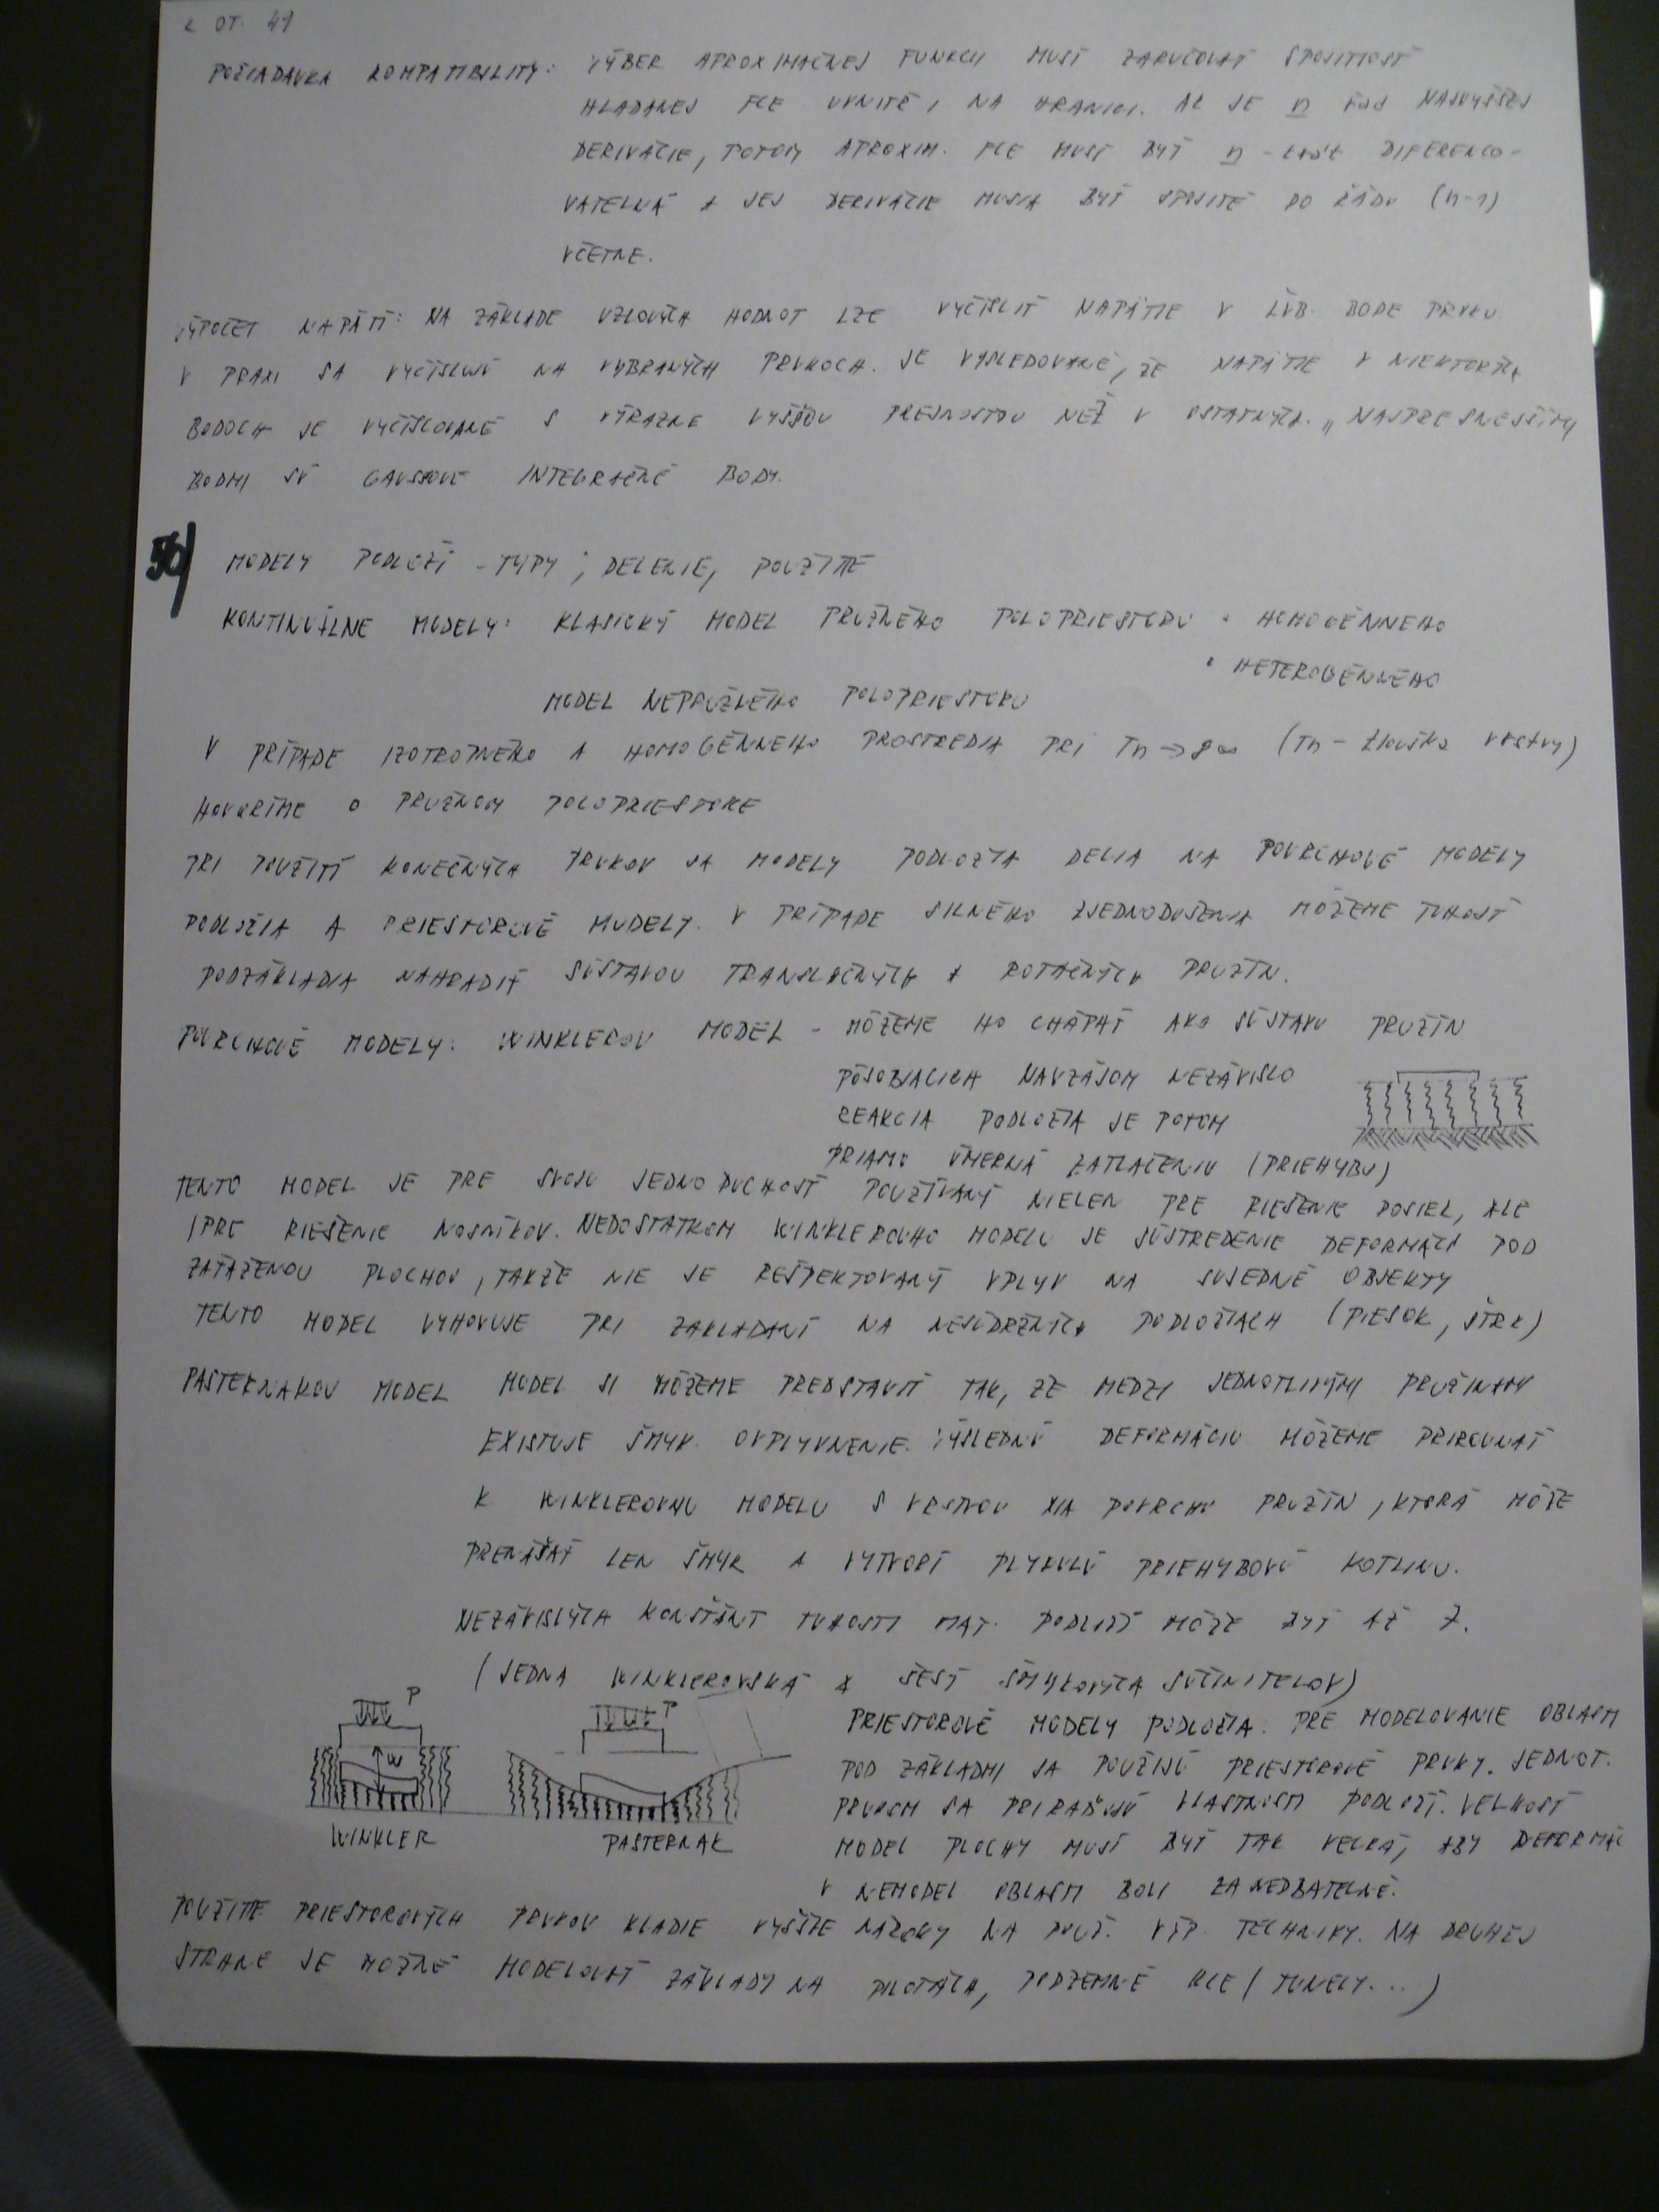 K OT. 49
POŽIADAVKA KOMPATIBILITY: VÝBER APROXIMAČNEJ FUNKCII MUSÍ ZARUČOVAŤ SPOJITOSŤ
HLADANEJ FCE UVNITŘ I NA HRANICI. AK JE n ŘÁD NAJVYŠŠEJ
DERIVÁCIE, POTOM APROXIM. FCE MUSÍ BYŤ n - krát DIFERENCO-
VATELNÁ A JEJ DERIVÁCIE MUSIA BYŤ SPOJITÉ DO ŘÁDU (n-1)
VČETNE.
VÝPOČET NAPÄTÍ: NA ZÁKLADE UZLOVÝCH HODNOT LZE VYČÍSLIŤ NAPÄTIE V ĽUB. BODE PRVKU.
V PRAXI SA VYČÍSLUJÚ NA VYBRANÝCH PRVKOCH. JE VYSLEDOVANÉ, ŽE NAPÄTIE V NIEKTORÝCH
BODOCH JE VYČÍSLOVANÉ S VÝRAZNE VYŠŠOU PRESNOSTOU NEŽ V OSTATNÝCH. „NAJPRESNEJŠÍMI
BODMI SÚ GAUSSOVE INTEGRAČNÉ BODY.
50/ MODELY PODLOŽÍ - TYPY, DELENIE, POUŽITIE
KONTINUÁLNE MODELY: KLASICKÝ MODEL PRUŽNÉHO POLOPRIESTORU • HOMOGÉNNEHO
• HETEROGÉNNEHO
MODEL NEPRUŽNÉHO POLOPRIESTORU
V PRÍPADE IZOTROPNÉHO A HOMOGÉNNEHO PROSTREDIA PRI Tn → ∞ (Tn - tlouška vrstvy)
HOVORÍME O PRUŽNOM POLOPRIESTORE
PRI POUŽITÍ KONEČNÝCH PRVKOV SA MODELY PODLOŽIA DELIA NA POVRCHOVÉ MODELY
PODLOŽIA A PRIESTOROVÉ MODELY. V PRÍPADE SILNÉHO ZJEDNODUŠENIA MÔŽEME TUHOSŤ
PODZÁKLADIA NAHRADIŤ SÚSTAVOU TRANSLAČNÝCH A ROTAČNÝCH PRUŽÍN.
POVRCHOVÉ MODELY: WINKLEROV MODEL - MÔŽEME HO CHÁPAŤ AKO SÚSTAVU PRUŽÍN
PÔSOBIACICH NAVZÁJOM NEZÁVISLO
REAKCIA PODLOŽIA JE POTOM
PRIAMO ÚMERNÁ ZATLAČENIU (PRIEHYBU)
TENTO MODEL JE PRE SVOJU JEDNODUCHOSŤ POUŽÍVANÝ NIELEN PRE RIEŠENIE DOSIEK, ALE
I PRE RIEŠENIE NOSNÍKOV. NEDOSTATKOM WINKLEROVHO MODELU JE SÚSTREDENIE DEFORMÁCÍ POD
ZAŤAŽENOU PLOCHOU, TAKŽE NIE JE REŠPEKTOVANÝ VPLYV NA SUSEDNÉ OBJEKTY
TENTO MODEL VYHOVUJE PRI ZAKLADANÍ NA NESÚDRŽNÝCH PODLOŽIACH (PIESOK, ŠTRK)
PASTERNAKOV MODEL MODEL SI MÔŽEME PREDSTAVIŤ TAK, ŽE MEDZI JEDNOTLIVÝMI PRUŽINAMI
EXISTUJE ŠMYK. OVPLYVNENIE. VÝSLEDNÚ DEFORMÁCIU MÔŽEME PRIROVNAŤ
K WINKLEROVMU MODELU S VRSTVOU NA POVRCHU PRUŽÍN, KTORÁ MÔŽE
PRENÁŠAŤ LEN ŠMYK A VYTVORÍ PLYNULÚ PRIEHYBOVÚ KOTLINU.
NEZÁVISLÝCH KONŠTÁNT TUHOSTI MAT. PODLOŽÍ MÔŽE BYŤ AŽ 7.
(JEDNA WINKLEROVSKÁ A ŠESŤ ŠMYKOVÝCH SÚČINITELOV)
P
W
WINKLER
P
PASTERNAK
PRIESTOROVÉ MODELY PODLOŽIA: PRE MODELOVANIE OBLASTI
POD ZÁKLADMI SA POUŽIJÚ PRIESTOROVÉ PRVKY. JEDNOT.
PRVKOM SA PRIRAĎUJÚ VLASTNOSTI PODLOŽÍ. VELKOSŤ
MODEL PLOCHY MUSÍ BYŤ TAK VELKÁ, ABY DEFORMÁC
V NEMODEL OBLASTI BOLI ZANEDBATELNÉ.
POUŽITIE PRIESTOROVÝCH PRVKOV KLADIE VYŠŠIE NÁROKY NA POUŽ. VÝP. TECHNIKY. NA DRUHEJ
STRANE JE MOŽNÉ MODELOVAŤ ZÁKLADY NA PILOTÁCH, PODZEMNÉ KCE (TUNELY...)